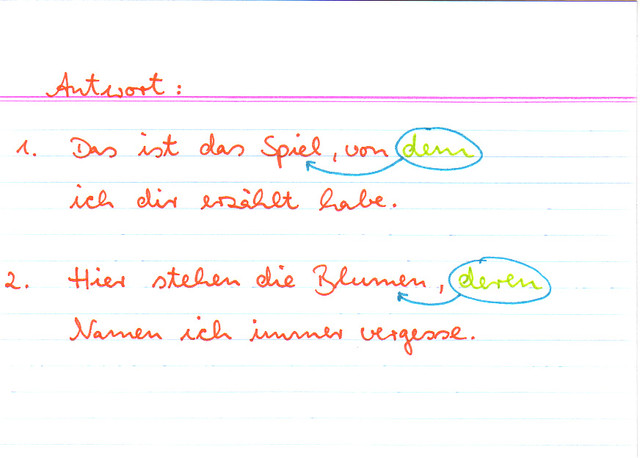 Antwort:
1. Das ist das Spiel, von dem
ich dir erzählt habe.
2. Hier stehen die Blumen, deren
Namen ich immer vergesse.